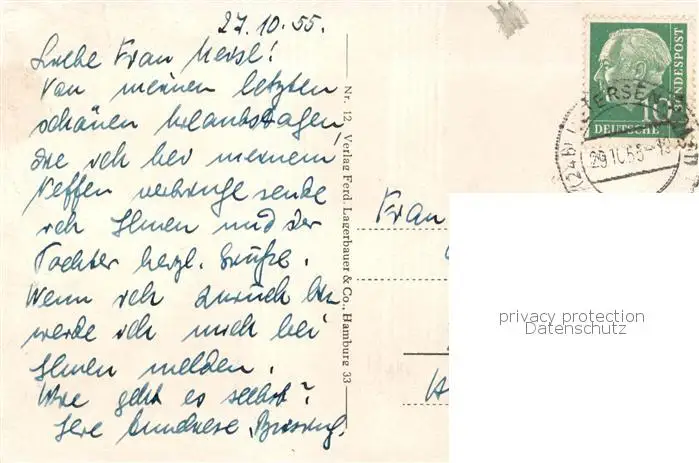 27.10.55.
Liebe Frau
Von meinen letzten
schönen Urlaubstagen,
die ich bei meinem
Neffen verbringe sende
ich Ihnen und der
Tochter herzl. Grüße.
Wenn ich zurück bin
werde ich mich bei
Ihnen melden.
Wie geht es selbst?
Ihre
Nr. 12 Verlag Ferd. Lagerbauer & Co., Hamburg 33
Frau
10
DEUTSCHE
BUNDESPOST
(24b)
29.10.55
privacy protection
Datenschutz